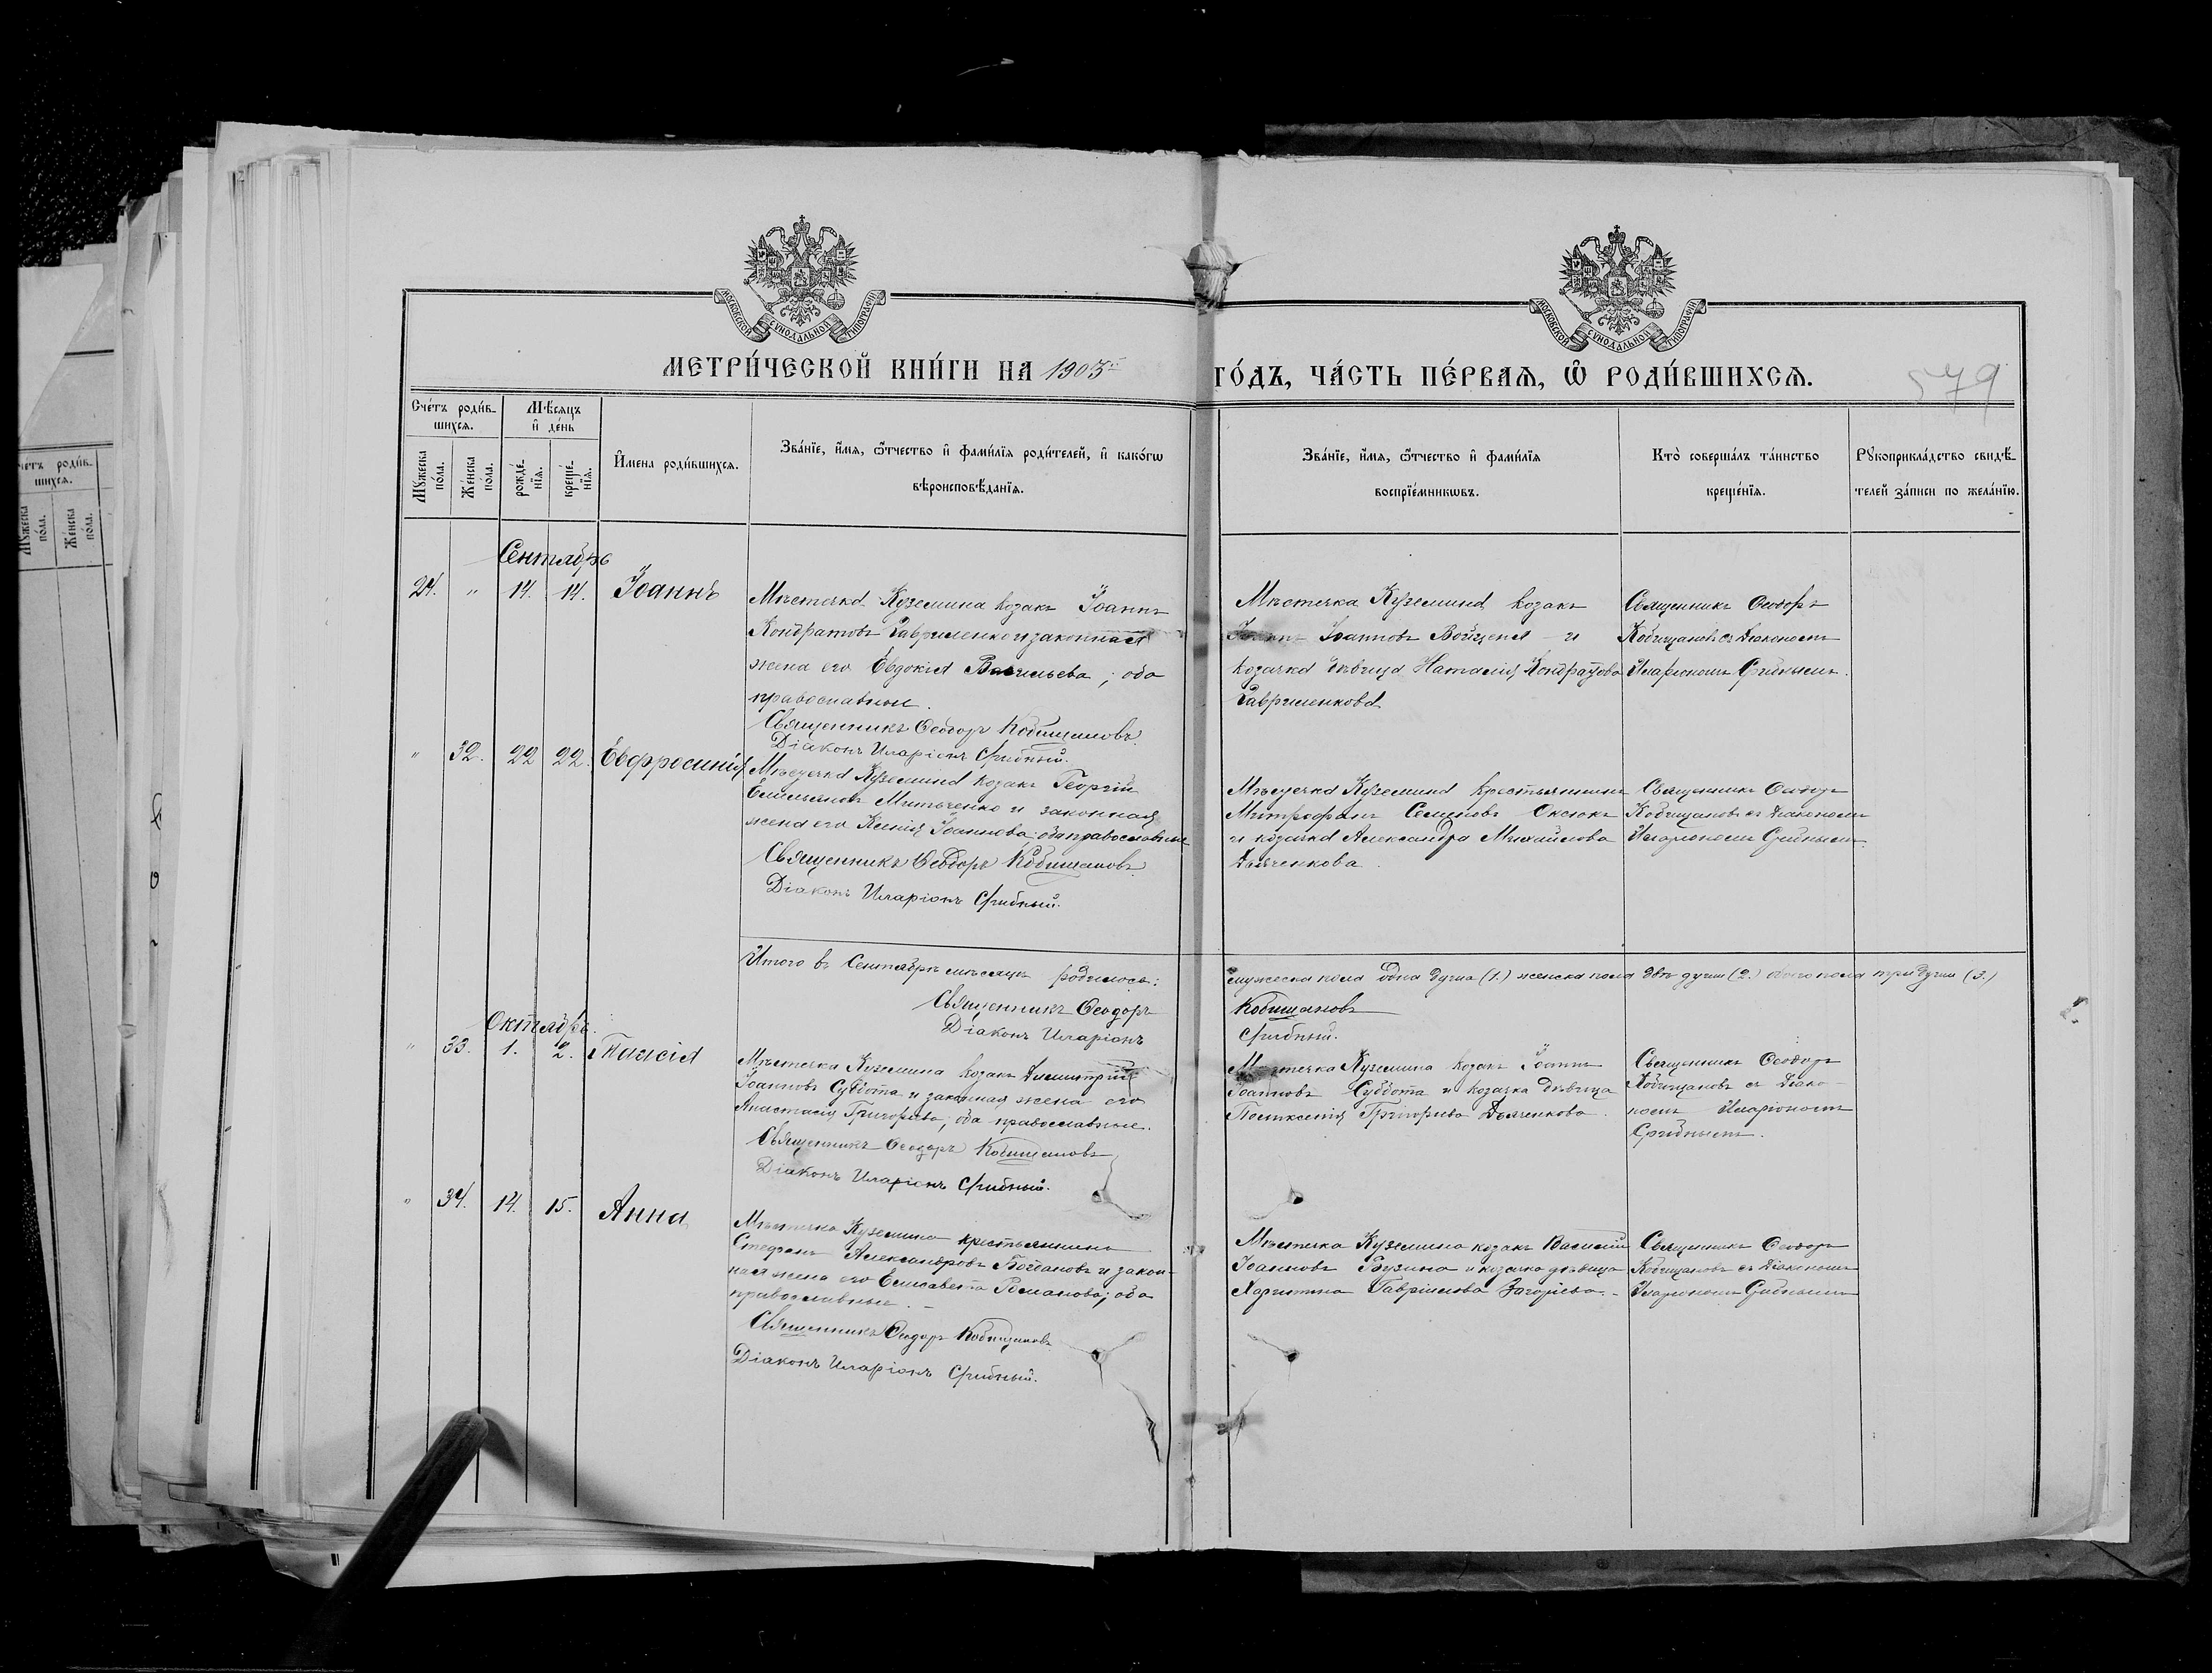 МОСКОВСКОЙ СѴНОДАЛЬНОЙ ТИПОГРАФІИ
МОСКОВСКОЙ СѴНОДАЛЬНОЙ ТИПОГРАФІИ
МЕТРИ́ЧЕСКОЙ КНИ́ГИ НА 1905й ГО́ДЪ, ЧА́СТЬ ПЕ́РВАѦ, Ѽ РОДИ́ВШИХСѦ.
579
Сче́тъ роди́в-
шихсѧ.
Мѣ́сѧцъ
и҆ де́нь
Мꙋ́жеска
по́ла.
Же́нска
по́ла.
рожде́-
нїѧ.
креще́-
нїѧ.
И҆мена роди́вшихсѧ.
Зва́нїе, и҆́мѧ, ѻ҆́тчество и҆ фами́лїѧ роди́телей, и҆ како́гѡ
вѣроисповѣ́данїѧ.
Зва́нїе, и҆́мѧ, ѻ҆́тчество и҆ фами́лїѧ
воспрїе́мникѡвъ.
Кто̀ соверша́лъ та́инство
креще́нїѧ.
Рꙋкоприкла́дство свидѣ́-
телей за́писи по жела́нїю.
Сентябрь
24. " 14. 14. Іоаннъ
Мѣстечка Куземина козакъ Іоаннъ
Кондратовъ Гавриленко и законная
жена его Евдокія Васильева; оба
православные.
Священникъ Ѳеодоръ Кобищановъ
Діаконъ Иларіонъ Срибный.
Мѣстечка Куземина козакъ
Іоанновъ и
козачка дѣвица Наталія Кондратова
Гавриленкова
Священникъ Ѳеодоръ
Кобищановъ съ Діакономъ
Иларіономъ Срибнымъ.
" 32. 22 22. Евфросинія
Мѣстечка Куземина козакъ Георгій
Емельяновъ Митченко и законная
жена его Ксенія Іоаннова: оба православные
Священникъ Ѳеодоръ Кобищановъ
Діаконъ Иларіонъ Срибный.
Мѣстечка Куземина крестьянинъ
Митрофанъ Семеновъ Оксюкъ
и козачка Александра Михайлова
Дьяченкова.
Священникъ Ѳеодоръ
Кобищановъ съ Діакономъ
Иларіономъ Срибнымъ.
Итого въ Сентябрѣ мѣсяцѣ родилось: мужеска пола одна душа (1.) женска пола двѣ души (2.) обоего пола три души (3.)
Священникъ Ѳеодоръ Кобищановъ
Діаконъ Иларіонъ Срибный.
Октябрь.
" 33. 1. 2. Таисія
Мѣстечка Куземина козакъ Димитрій
Іоанновъ Суббота и законная жена его
Анастасія Григорьева; оба православные.
Священникъ Ѳеодоръ Кобищановъ
Діаконъ Иларіонъ Срибный.
Мѣстечка Куземина козакъ Іоаннъ
Іоанновъ Суббота и козачка дѣвица
Григорьева Дьяченкова.
Священникъ Ѳеодоръ
Кобищановъ съ Діако-
номъ Иларіономъ
Срибнымъ.
" 34. 14. 15. Анна
Мѣстечка Куземина крестьянинъ
Стефанъ Александровъ Богдановъ и закон-
ная жена его Елисавета Романова; оба
православные.
Священникъ Ѳеодоръ Кобищановъ
Діаконъ Иларіонъ Срибный.
Мѣстечка Куземина козакъ Василій
Іоанновъ Бузина и козачка дѣвица
Харитина Гавріилова
Священникъ Ѳеодоръ
Кобищановъ съ Діакономъ
Иларіономъ Срибнымъ